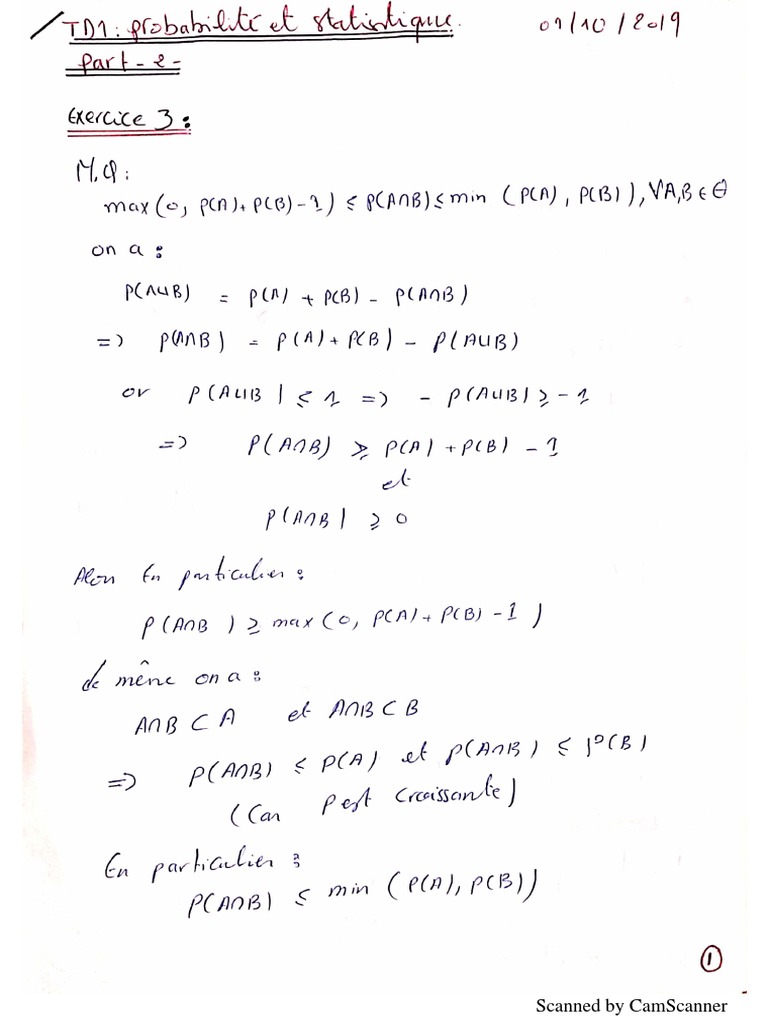 TD1: probabilité et statistique. 01/10/2019
part-2-
Exercice 3:
M.Q:
max(0, P(A)+P(B)-1) ≤ P(A∩B) ≤ min (P(A), P(B)), ∀A,B ∈ θ
on a:
P(A∪B) = P(A) + P(B) - P(A∩B)
=> P(A∩B) = P(A) + P(B) - P(A∪B)
or P(A∪B) ≤ 1 => - P(A∪B) ≥ -1
=> P(A∩B) ≥ P(A) + P(B) - 1
et
P(A∩B) ≥ 0
Alors En particulier:
P(A∩B) ≥ max(0, P(A)+P(B)-1)
de même on a:
A∩B ⊂ A et A∩B ⊂ B
=> P(A∩B) ≤ P(A) et P(A∩B) ≤ P(B)
(Car P est croissante)
En particulier:
P(A∩B) ≤ min (P(A), P(B))
1
Scanned by CamScanner